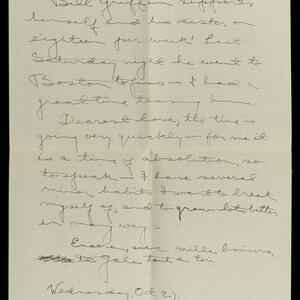 Bill Griffin supports
himself and his sister on
eighteen per week! Last
Saturday night he went to
Boston to pass — I had a
great time teasing him.
Dearest love, the time is
going very quickly — for me it
is a time of absolution, so
to speak — I have several
minor habits I want to break
myself of, and to grow lots better
in many ways
Encore, avec mille baisers,
to Gale
Wednesday, Oct. 27.